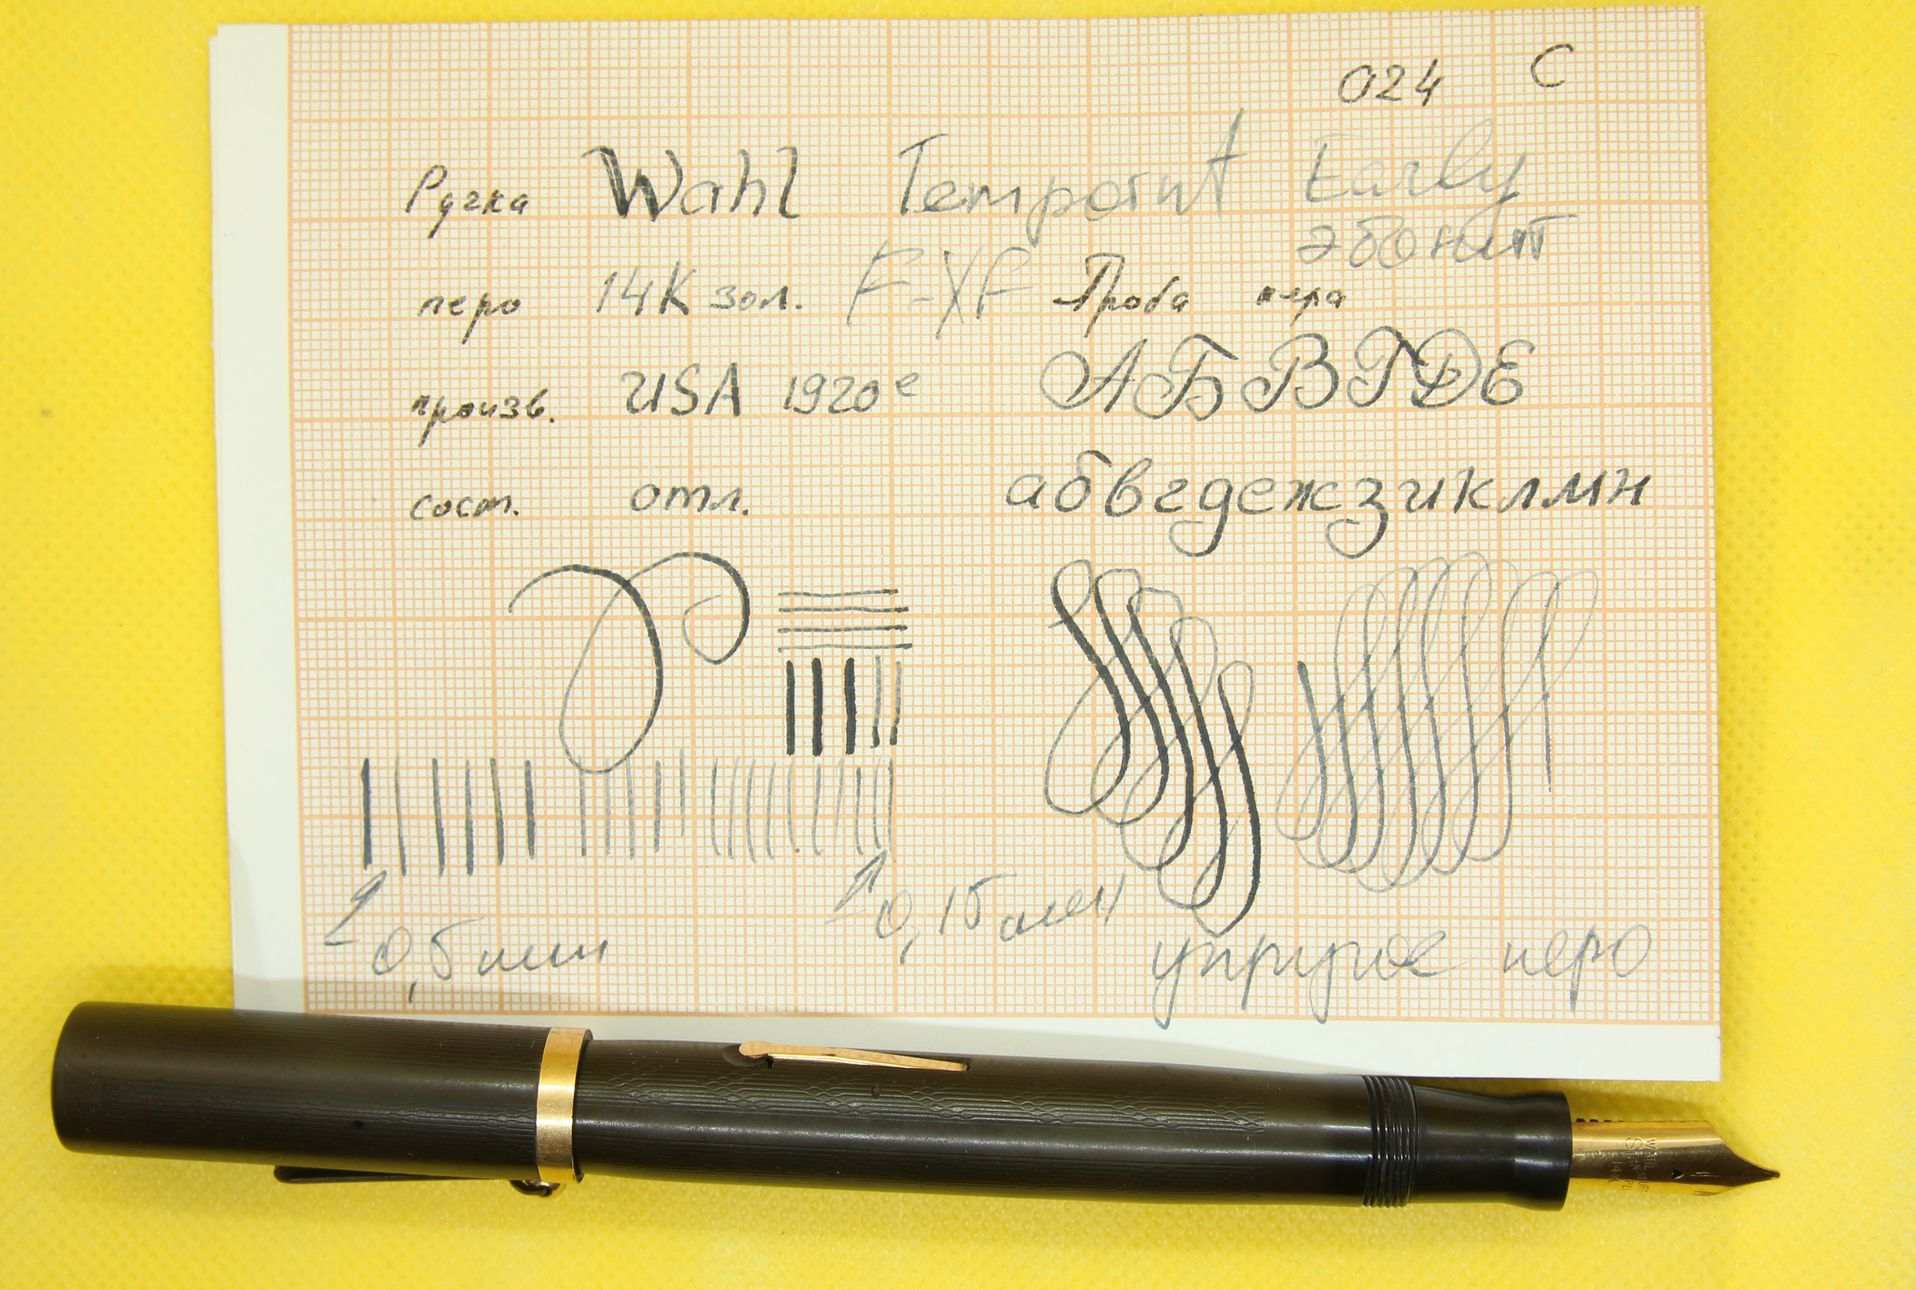 024 С
Ручка Wahl Tempoint Early
эбонит
перо 14К зол. F-XF Проба пера
произв. USA 1920е АБВГДЕ
сост. отл. абвгдежзиклмн
0,5 мм 0,15 мм упругое перо